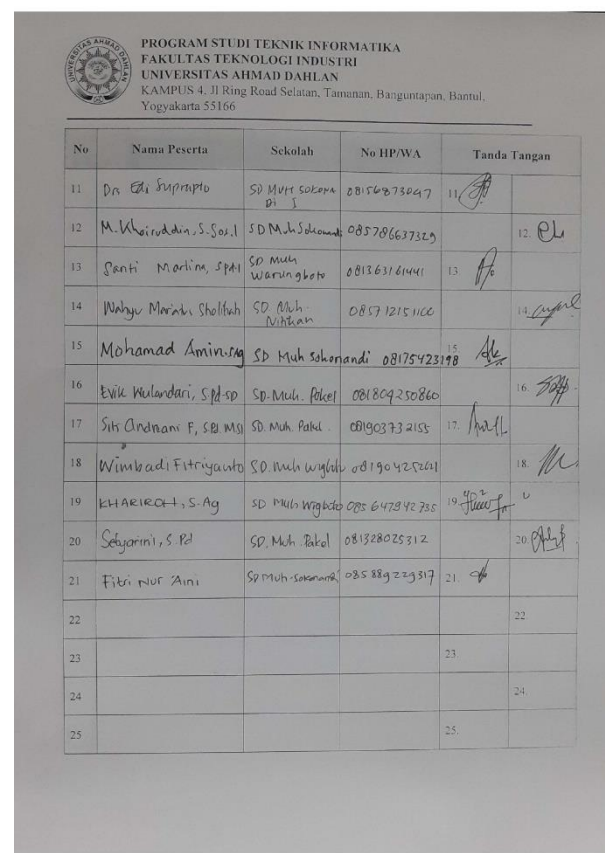 UNIVERSITAS AHMAD DAHLAN
PROGRAM STUDI TEKNIK INFORMATIKA
FAKULTAS TEKNOLOGI INDUSTRI
UNIVERSITAS AHMAD DAHLAN
KAMPUS 4, Jl Ring Road Selatan, Tamanan, Banguntapan, Bantul,
Yogyakarta 55166
No Nama Peserta Sekolah No HP/WA Tanda Tangan
11 Drs Edi Suprapto SD Muh Sokonan 08156873047 11.
di
12 M. Khoiruddin, S.Sos.I SD Muh Sokonandi 085786637329 12.
13 Santi Marlina, SPd.I SD Muh 081363161441 13
Warungboto
14 Wahyu Sholihah SD Muh. 14.
Nitikan
15 Mohamad Amin.SAg SD Muh Sokonandi 08175423198 15
16 Evik Wulandari, S.Pd-SD SD. Muh. Pakel 081804250860 16.
17 Siti F, SD. Muh. Pakel 081903732155 17.
18 Wimbadi Fitriyanto SD. Muh 18.
19 KHARIROH, S.Ag SD Muh Wrgboto 085647842735 19.
20 Setyarini, S.Pd SD. Muh. Pakel 081328025312 20.
21 Fitri Nur 'Aini SD Muh-Sokonandi 085889229317 21.
22 22
23 23
24 24.
25 25.